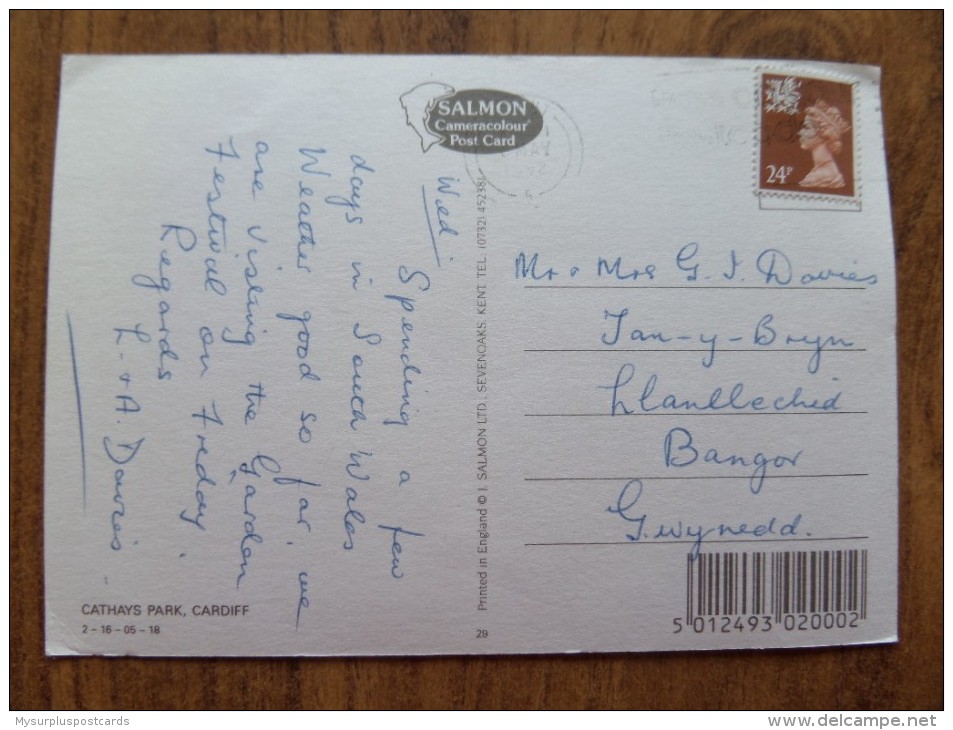 SALMON
Cameracolour
Post Card
24P
Wed
Spending a few
days in South Wales
Weather good so far we
are visting the Garden
Festival on Freday
Regards
L. + A. Davies.
Mr + Mrs G. I. Davies
Tan-y-Bryn
Llanllechid
Bangor
Gwynedd.
Printed in England © J. SALMON LTD., SEVENOAKS, KENT. TEL. (0732) 452381
CATHAYS PARK, CARDIFF
2 - 16 - 05 - 18
28
5 012493 020002
Mysurpluspostcards
www.delcampe.net